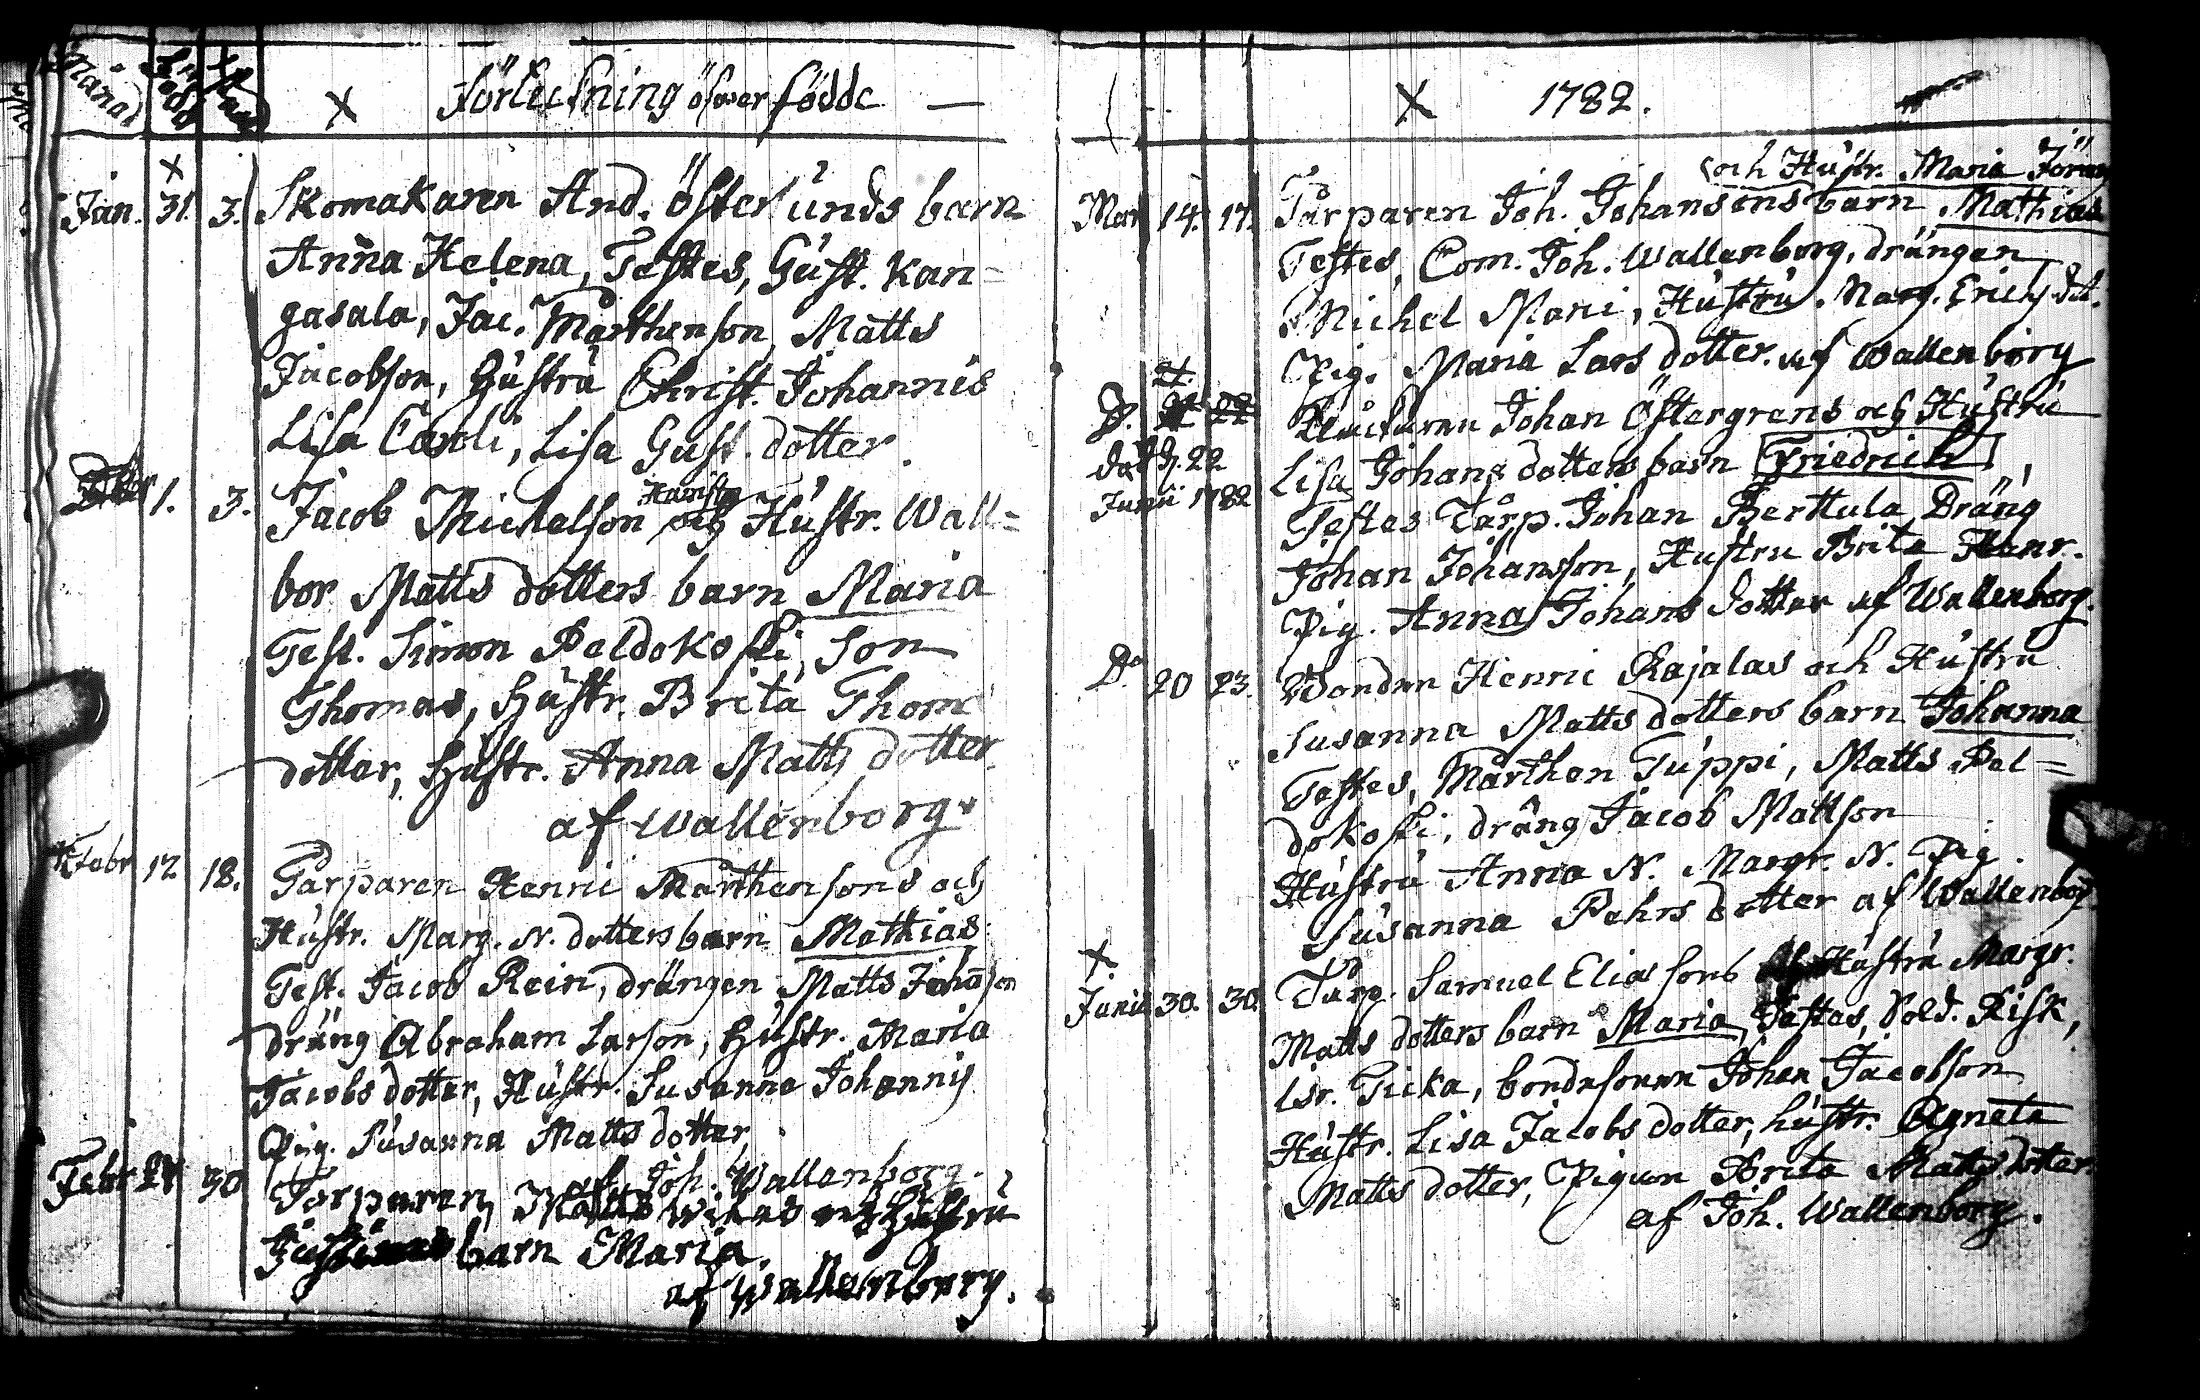 Månad
X Förteckning öfwer födde —
Jan. 31. 3. Skomakaren And. Österlunds barn
Anna Helena, Testes, Gust. Kan=
gasala, Jac. Mårthenson, Matts
Jacobson, Hustru Christ. Johannis
Lisa Caroli, Lisa Gust. dotter.
1. 3. Jacob Michelson och Hustr. Wall=
bor Matts dotters barn Maria
Test. Simon Peldokoski, Son
Thomas, Hustr. Brita Thom
dotter, Hustr. Anna Matts dotter
af Wallenborg.
Febr 12 18. Tårparen Henric Mårthensons och
Hustr. Marg. N. dotters barn Mathias
Test. Jacob Rein, drängen Matts Johason
dräng Abraham Larson, Hustr. Maria
Jacobs dotter, Hustr. Susanna Johannis
Pig. Susanna Matts dotter,
af Joh. Wallenborg.
Febr 24 30 Torparen, Matts och Hustru
barn Maria.
af Wallenborg.
X 1782.
och Hustr. Maria
Mart 14. 17. Tårparen Joh. Johansons barn Mathias
Testes, Com. Joh. Wallenborg, drängen
Michel Mani, Hustru Marg. Erichs dt.
Pig. Maria Lars dotter. af Wallenborg
21.
Johan Östergrens och Hustru
död d. 22 Lisa Johans dotters barn Friedrich,
Junii 1782 Testes Tårp. Johan Berttula Dräng
Johan Johansson, Hustru Brita Henr.
Pig. Anna Johans dotter af Wallenborg.
Do 20 23. Bonden Henric Rajalas och Hustru
Susanna Matts dotters barn Johanna
Testes, Mårthen Tuppi, Matts Pel=
dokoski, dräng Jacob Mattson
Hustru Anna N. Margr. N. Pig.
Susanna Pehrs dotter af Wallenborg
X
Junii 30. 30. Tårp. Samuel Eliasons Hustru Margr.
Matts dotters barn Maria, Testes, Sold. Risk,
Isr. Ticka, bondesonen Johan Jacobson
Hustr. Lisa Jacobs dotter, hustr. Agneta
Matts dotter, Pigan Brita Matts dotter
af Joh. Wallenborg.